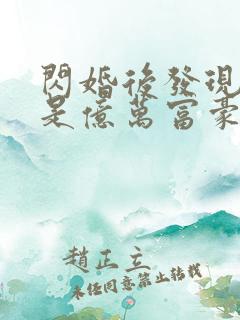 閃婚後發現
是億萬富豪
趙正立
未經同意禁止轉載